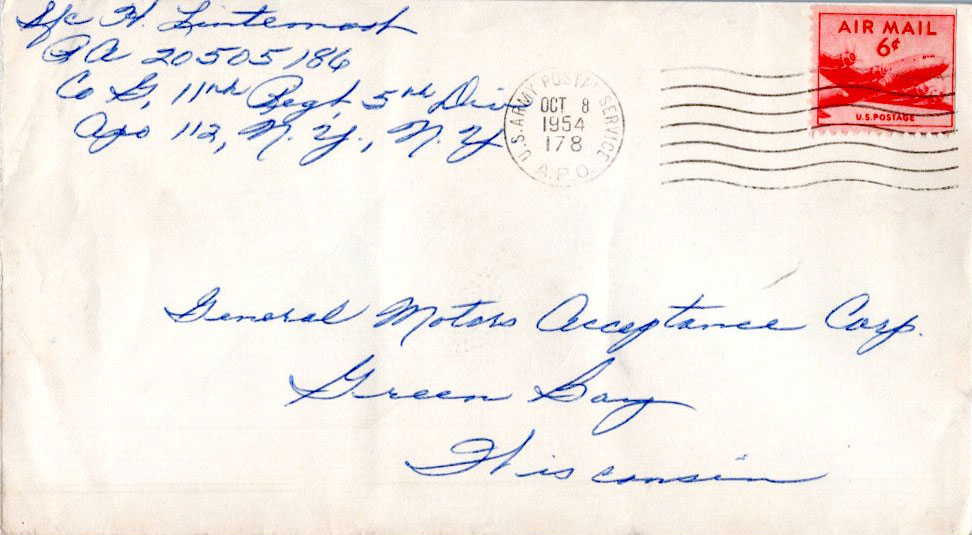 Sfc H. Linternash
RA 20505186
Co G, 11nh Regt, 5th Div
Apo 112, N.Y., N.Y
U.S. ARMY POSTAL SERVICE
OCT 8
1954
178
A.P.O.
AIR MAIL
6¢
U.S. POSTAGE
General Motors Acceptance Corp.
Green Bay
Wisconsin